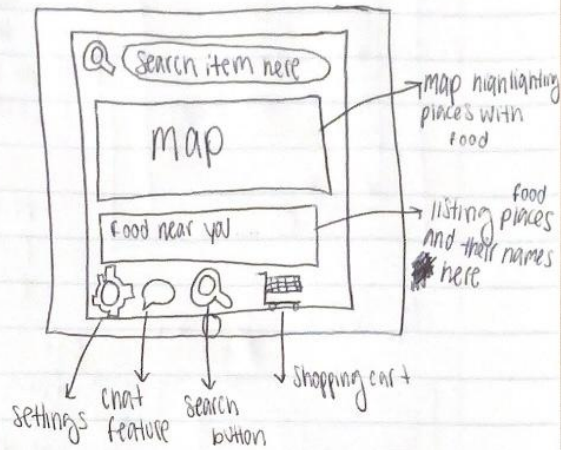 search item here
map
food near you...
map highlighting
places with
food
food
listing places
and their names
here
settings
chat
feature
search
button
shopping cart